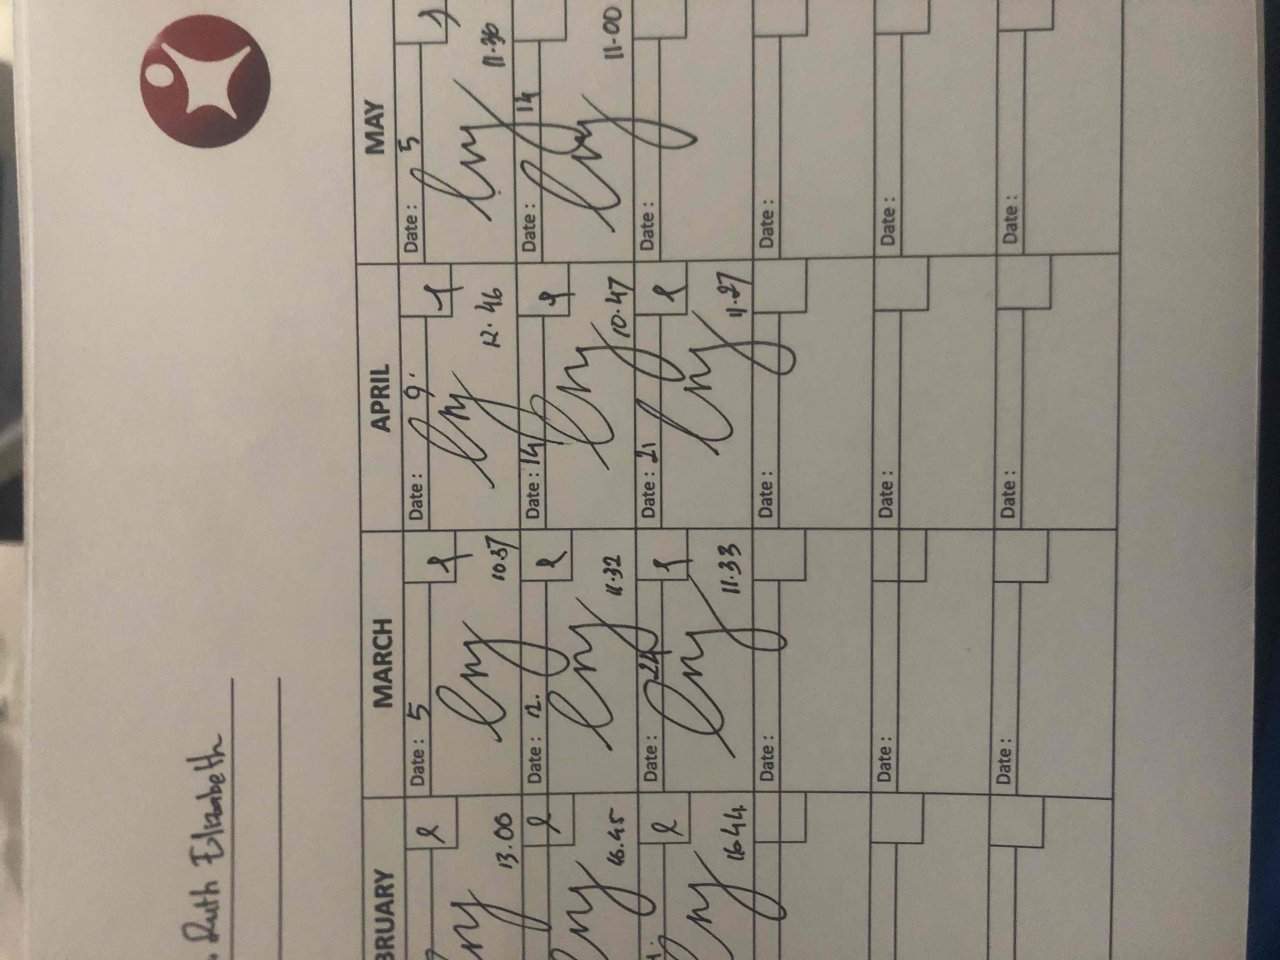 Ruth Elizabeth
BRUARY MARCH APRIL MAY
Date: 5 Date: 9. Date: 5
13.00 10.37 12.46 11.36
Date: 12. Date: 14 Date: 14
16.45 11.32 10.47 11.00
Date: 24 Date: 21 Date:
16.44 11.33 11.27
Date: Date: Date:
Date: Date: Date:
Date: Date: Date: